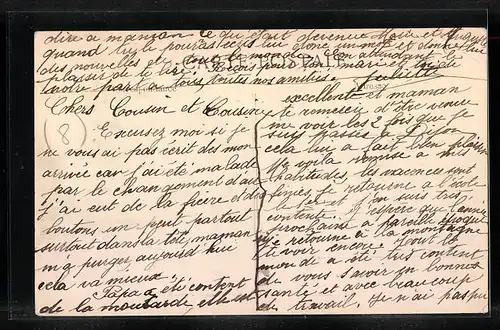 dire a manzon ce qu fait devenue Marie et
quand tu le pouras ecris lui donc un mot et donne lui
des nouvelles de tout le monde
plaisir de le lire
toutes nos amitiés. Juliette
CARTE POSTALE
Chers Cousin et Cousine
8
Excusez moi si je
ne vous ai pas ecrit des mon
arrivé car j'ai été malade
par le changement d'air
j'ai eut de la fievre et des
boutons un peut partout
surtout dans la tête maman
m'a purger aujourd hui
cela va mieux
Papa a été content
de la moutarde elle est
excellente et maman
te remercie d'être venue
me voir les 2 fois que je
suis passée a Dijon
cela lui a fait bien plaisir
M'y voila remise a mes
habitudes, les vacances sont
finies je retourne a l'école
et j'en suis très
contente. J'espère que l'année
prochaine a pareille époque
je retourne à la montagne
te voir encore. Tout le
monde a été très content
de vous savoir en bonne
santé et avec beaucoup
de travail. Je n'ai pas pu